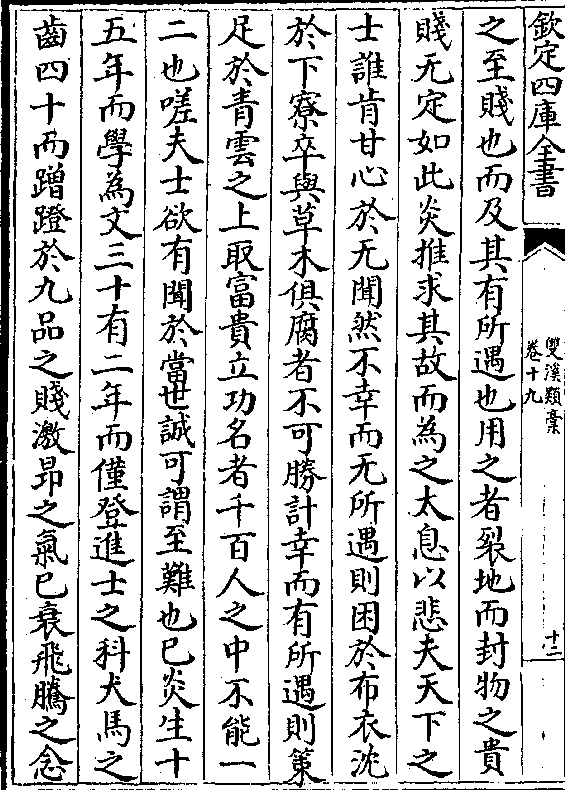 欽定四庫全書
雙溪類稾
卷十九
十二
之至賤也而及其有所遇也用之者裂地而封物之貴
賤无定如此炎推求其故而為之太息以悲夫天下之
士誰肯甘心於无聞然不幸而无所遇則困於布衣沈
於下寮卒與草木俱腐者不可勝計幸而有所遇則䇿
足於青雲之上取富貴立功名者千百人之中不能一
二也嗟夫士欲有聞於當世誠可謂至難也已炎生十
五年而學為文三十有二年而僅登進士之科犬馬之
齒四十而蹭蹬於九品之賤激昂之氣已衰飛騰之念